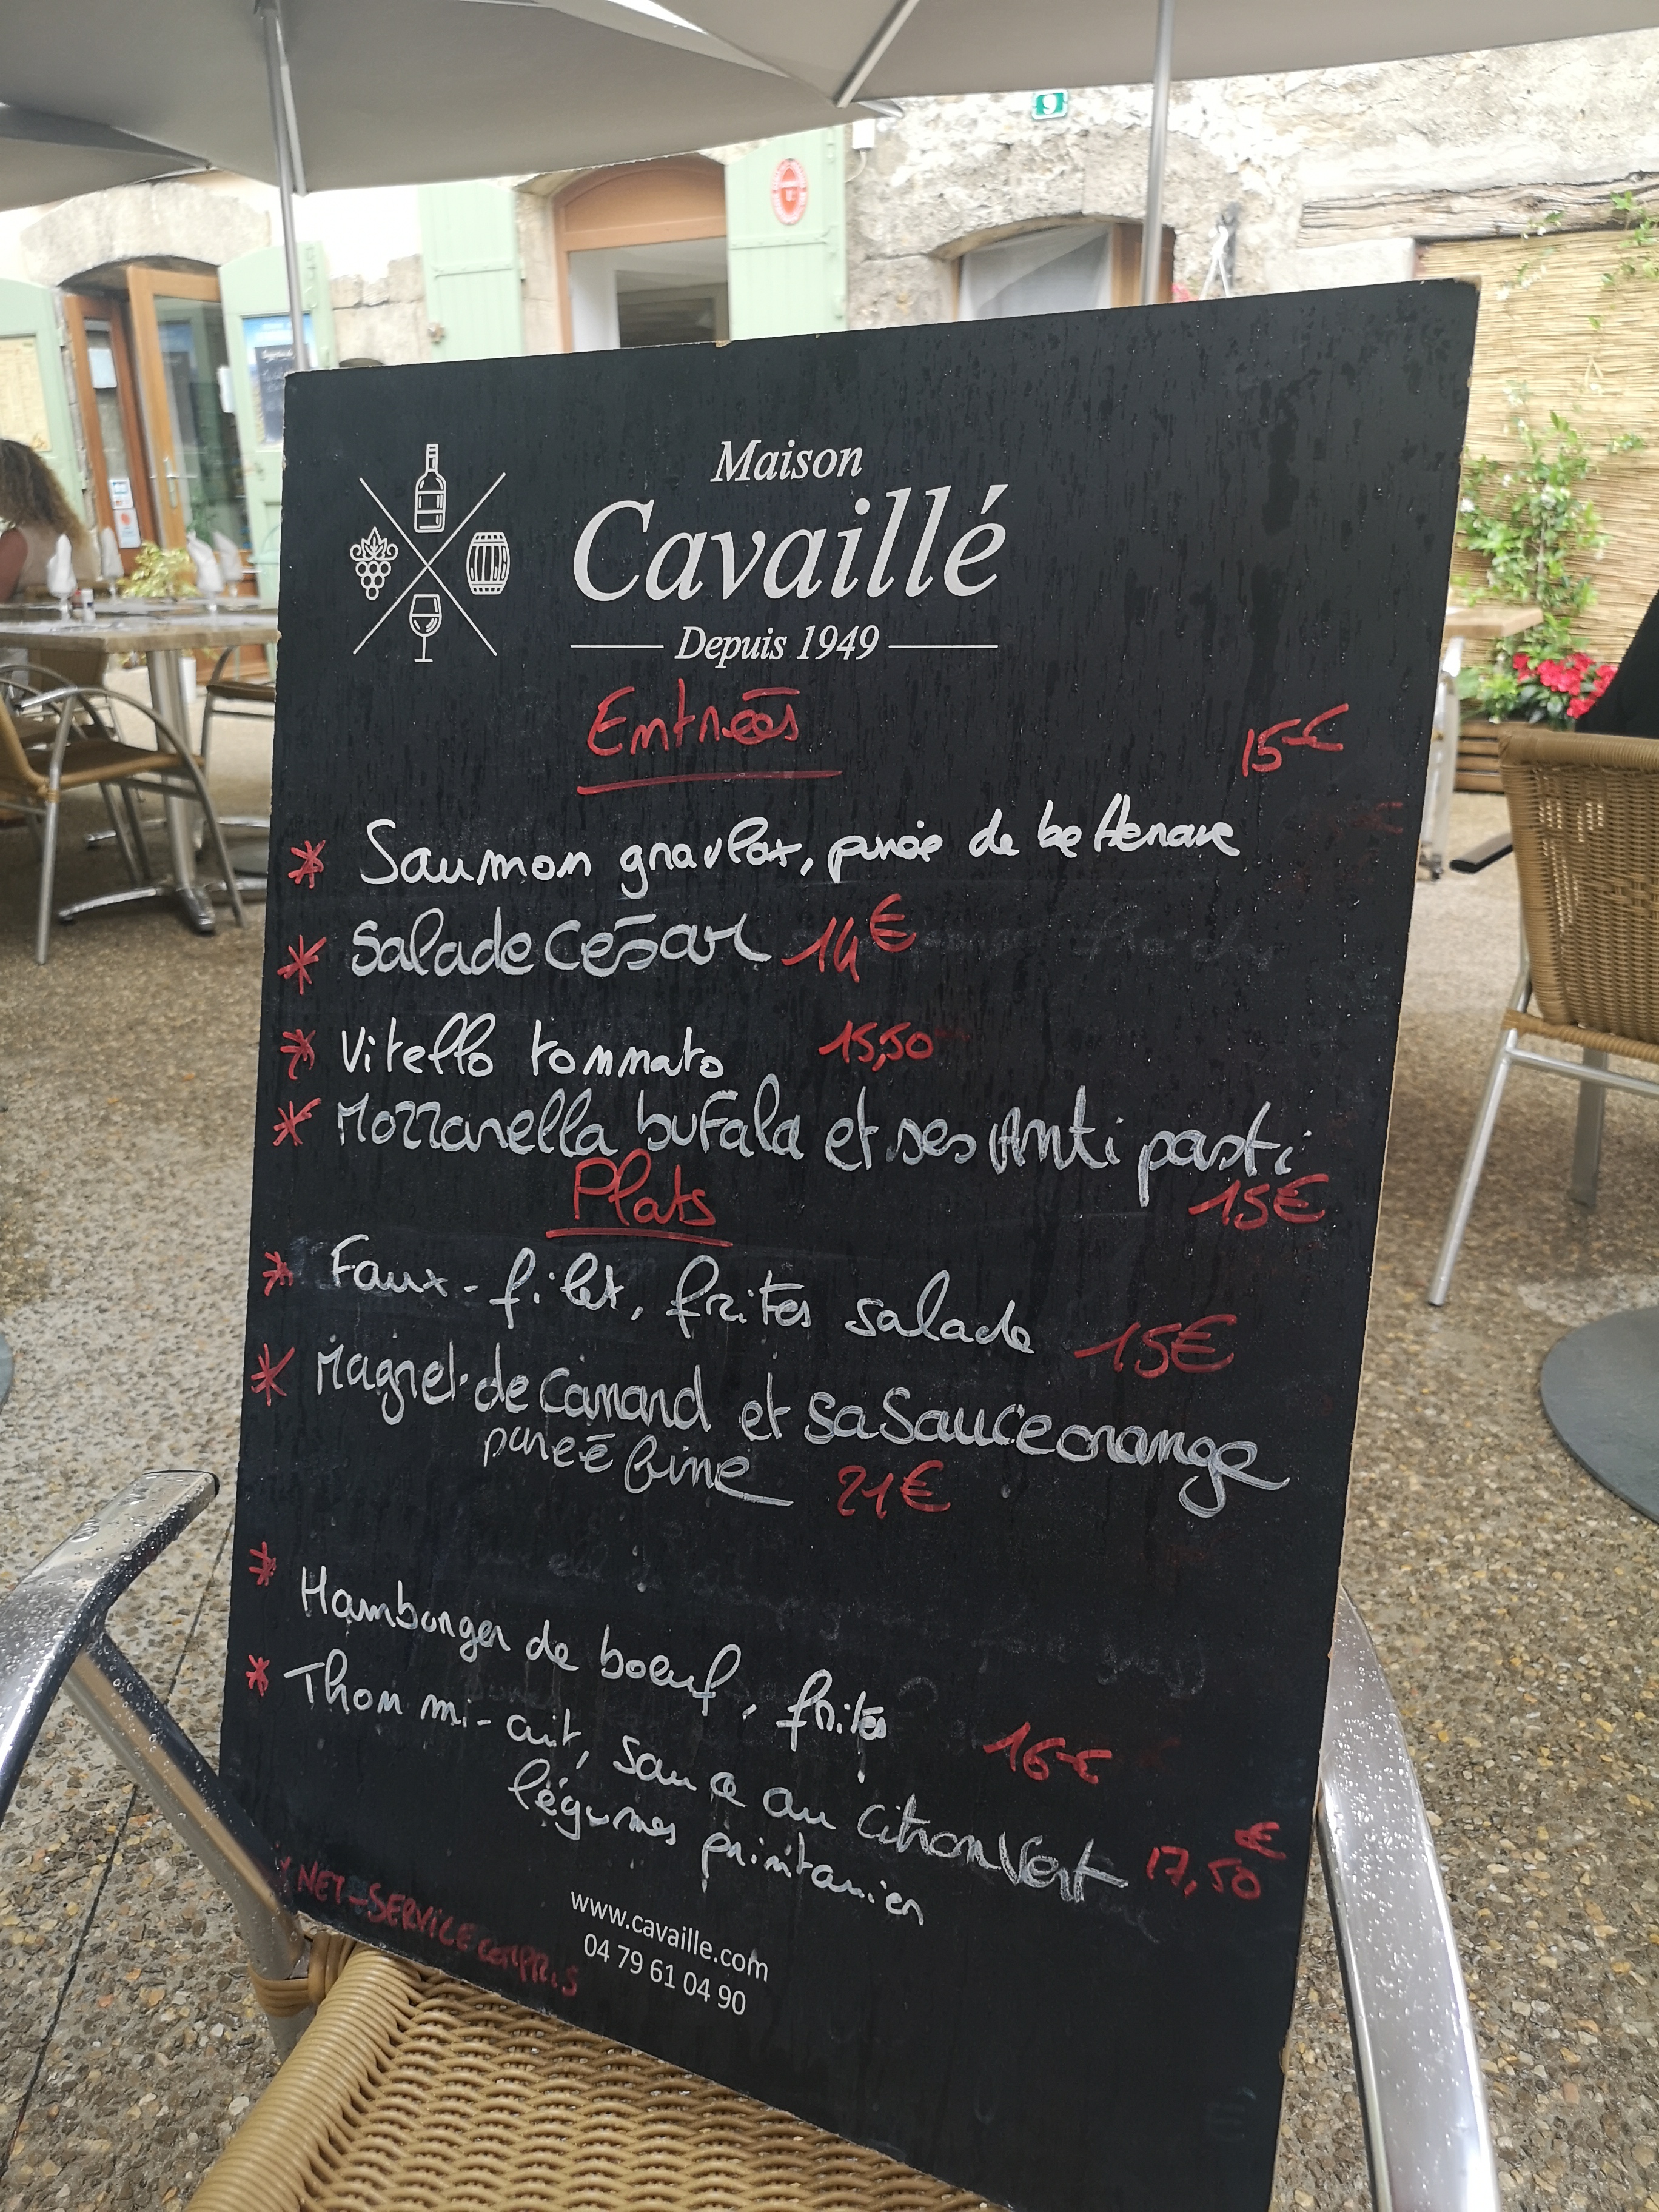 Maison
Cavaillé
Depuis 1949
Entrées
15€
* Saumon gravlax, purée de betterave
* Salade César 14€
* Vitello tonnato 15,50
* Mozzarella bufala et ses Antipasti
15€
Plats
* Faux-filet, frites salade 15€
* Magret de Canard et sa Sauce orange
pureé fine 21€
* Hamburger de boeuf, frites 16€
* Thon mi-cuit, sauce au citron Vert 17,50€
légumes printanier
* NET-SERVICE COMPRIS
www.cavaille.com
04 79 61 04 90